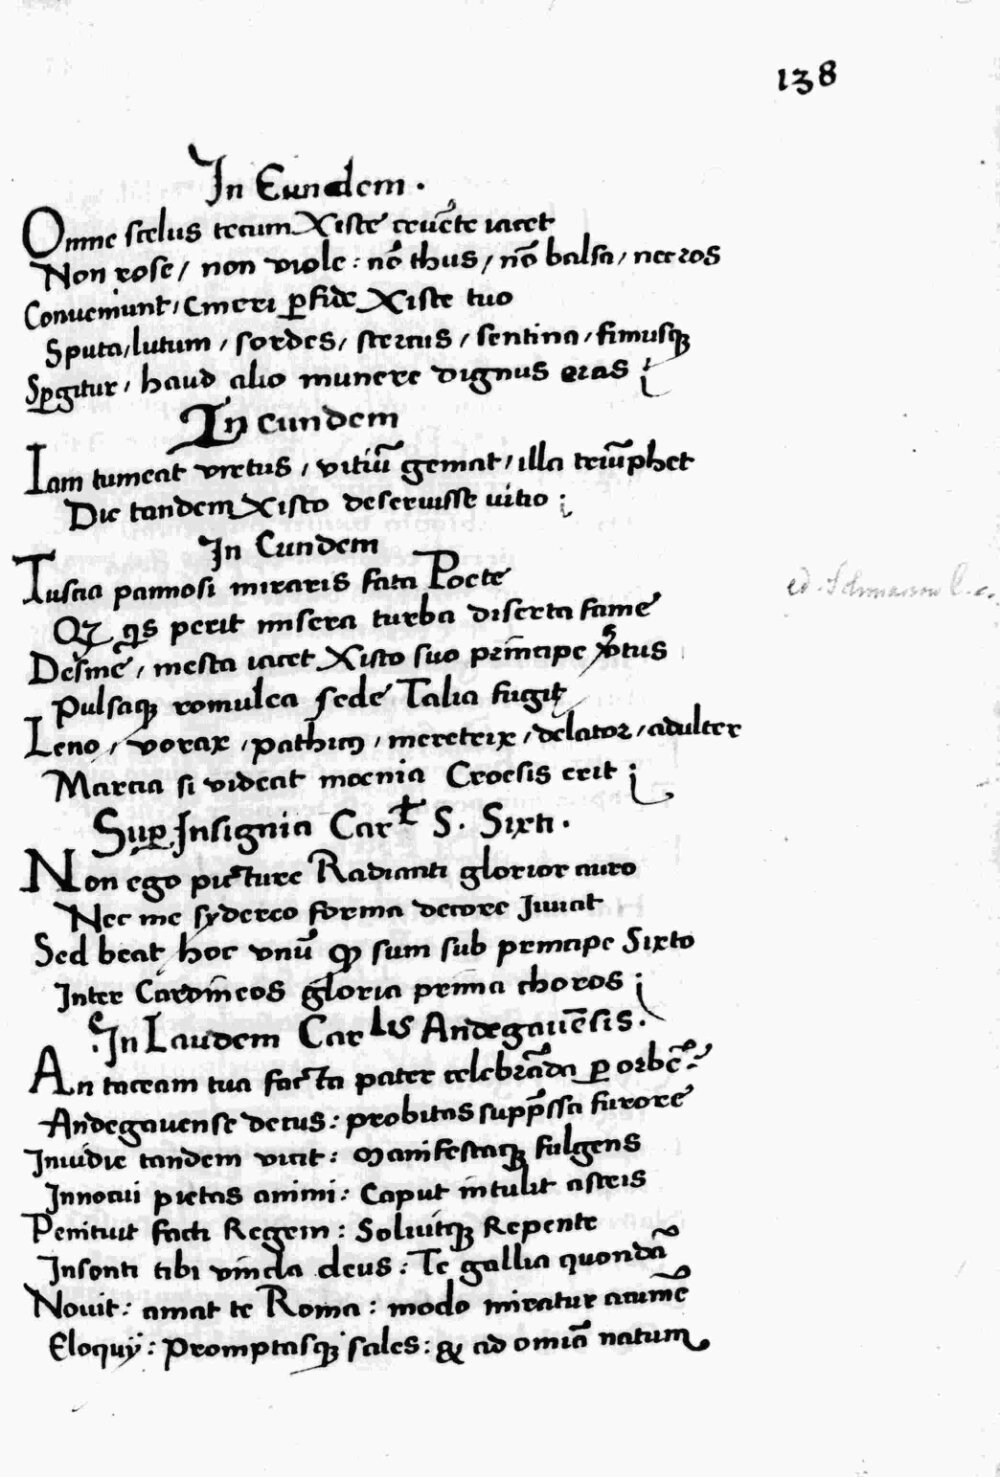 138
In Eundem .
Omne scelus tecum Xiste cruẽte iacet
Non rose / non viole : nõ thus / nõ balsa / nec ros
Conueniunt / Cineri ꝑfide Xiste tuo
Sputa / lutum / sordes / stercus / sentina / fimusqꝫ
Spgitur / haud alio munere dignus eras ;
In eundem
Iam tumeat virtus / vitiũ gemat / illa triũphet
Dic tandem Xisto deseruisse vitio ;
In Eundem
Tuscia pannosi miraris fata Poete
Qꝫ qs perit misera turba diserta fame
Desine / mesta iacet Xisto suo principe virtus
Pulsaqꝫ romulea sede Talia fugit
Leno / vorax / pathicꝰ / meretrix / delator / adulter
Marcia si videat moenia Croesis erit ;
Suꝑ Insignia Carᵗ S . Sixti .
Non ego picture Radianti glorior auro
Nec me sydereo forma decore Iuuat
Sed beat hoc vnũ ꝙ sum sub principe Sixto
Inter Cardineos gloria prima choros ;
In Laudem Carˡⁱˢ Andegauẽsis .
An taceam tua facta pater celebrãda ꝑ orbẽ :
Andegauense decus : probitas supp̃ssa furore
Inuidie tandem vicit : Manifestaqꝫ fulgens
Innocui pietas animi : Caput intulit astris
Penituit facti Regem : Soluitqꝫ Repente
Insonti tibi vincla deus : Te gallia quondã
Nouit : amat te Roma : modo miratur acumẽ
Eloquij : Promptasqꝫ sales : & ad omiã natum